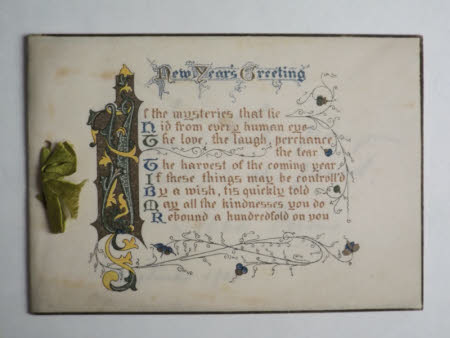 New Year's Greeting
If the mysteries that lie
Hid from every human eye
The love, the laugh, perchance,
the tear
The harvest of the coming year,
If these things may be controll'd
By a wish, tis quickly told
May all the kindnesses you do
Rebound a hundredfold on you